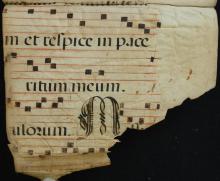 m et respice in p ice
ritum meum.
ulorum. M